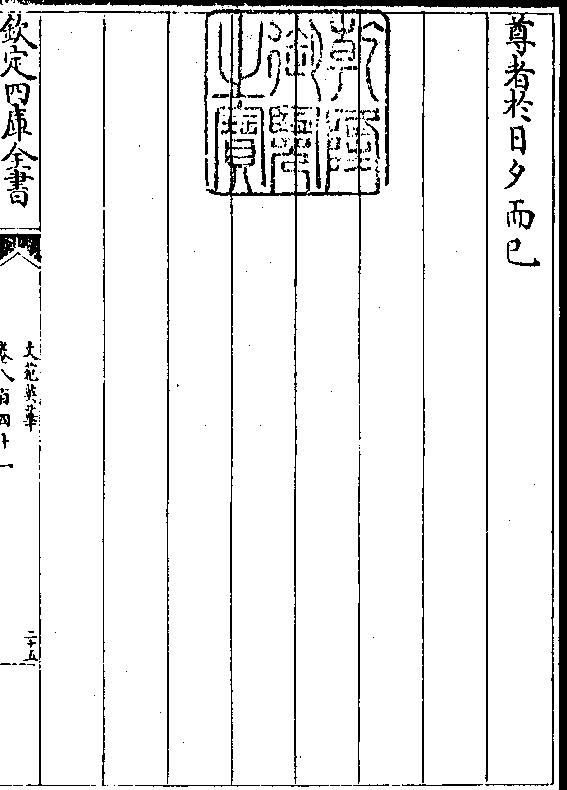 尊者於日夕而已
乾隆御覽之寶
欽定四庫全書
文苑英華
卷八百四十一
二十五